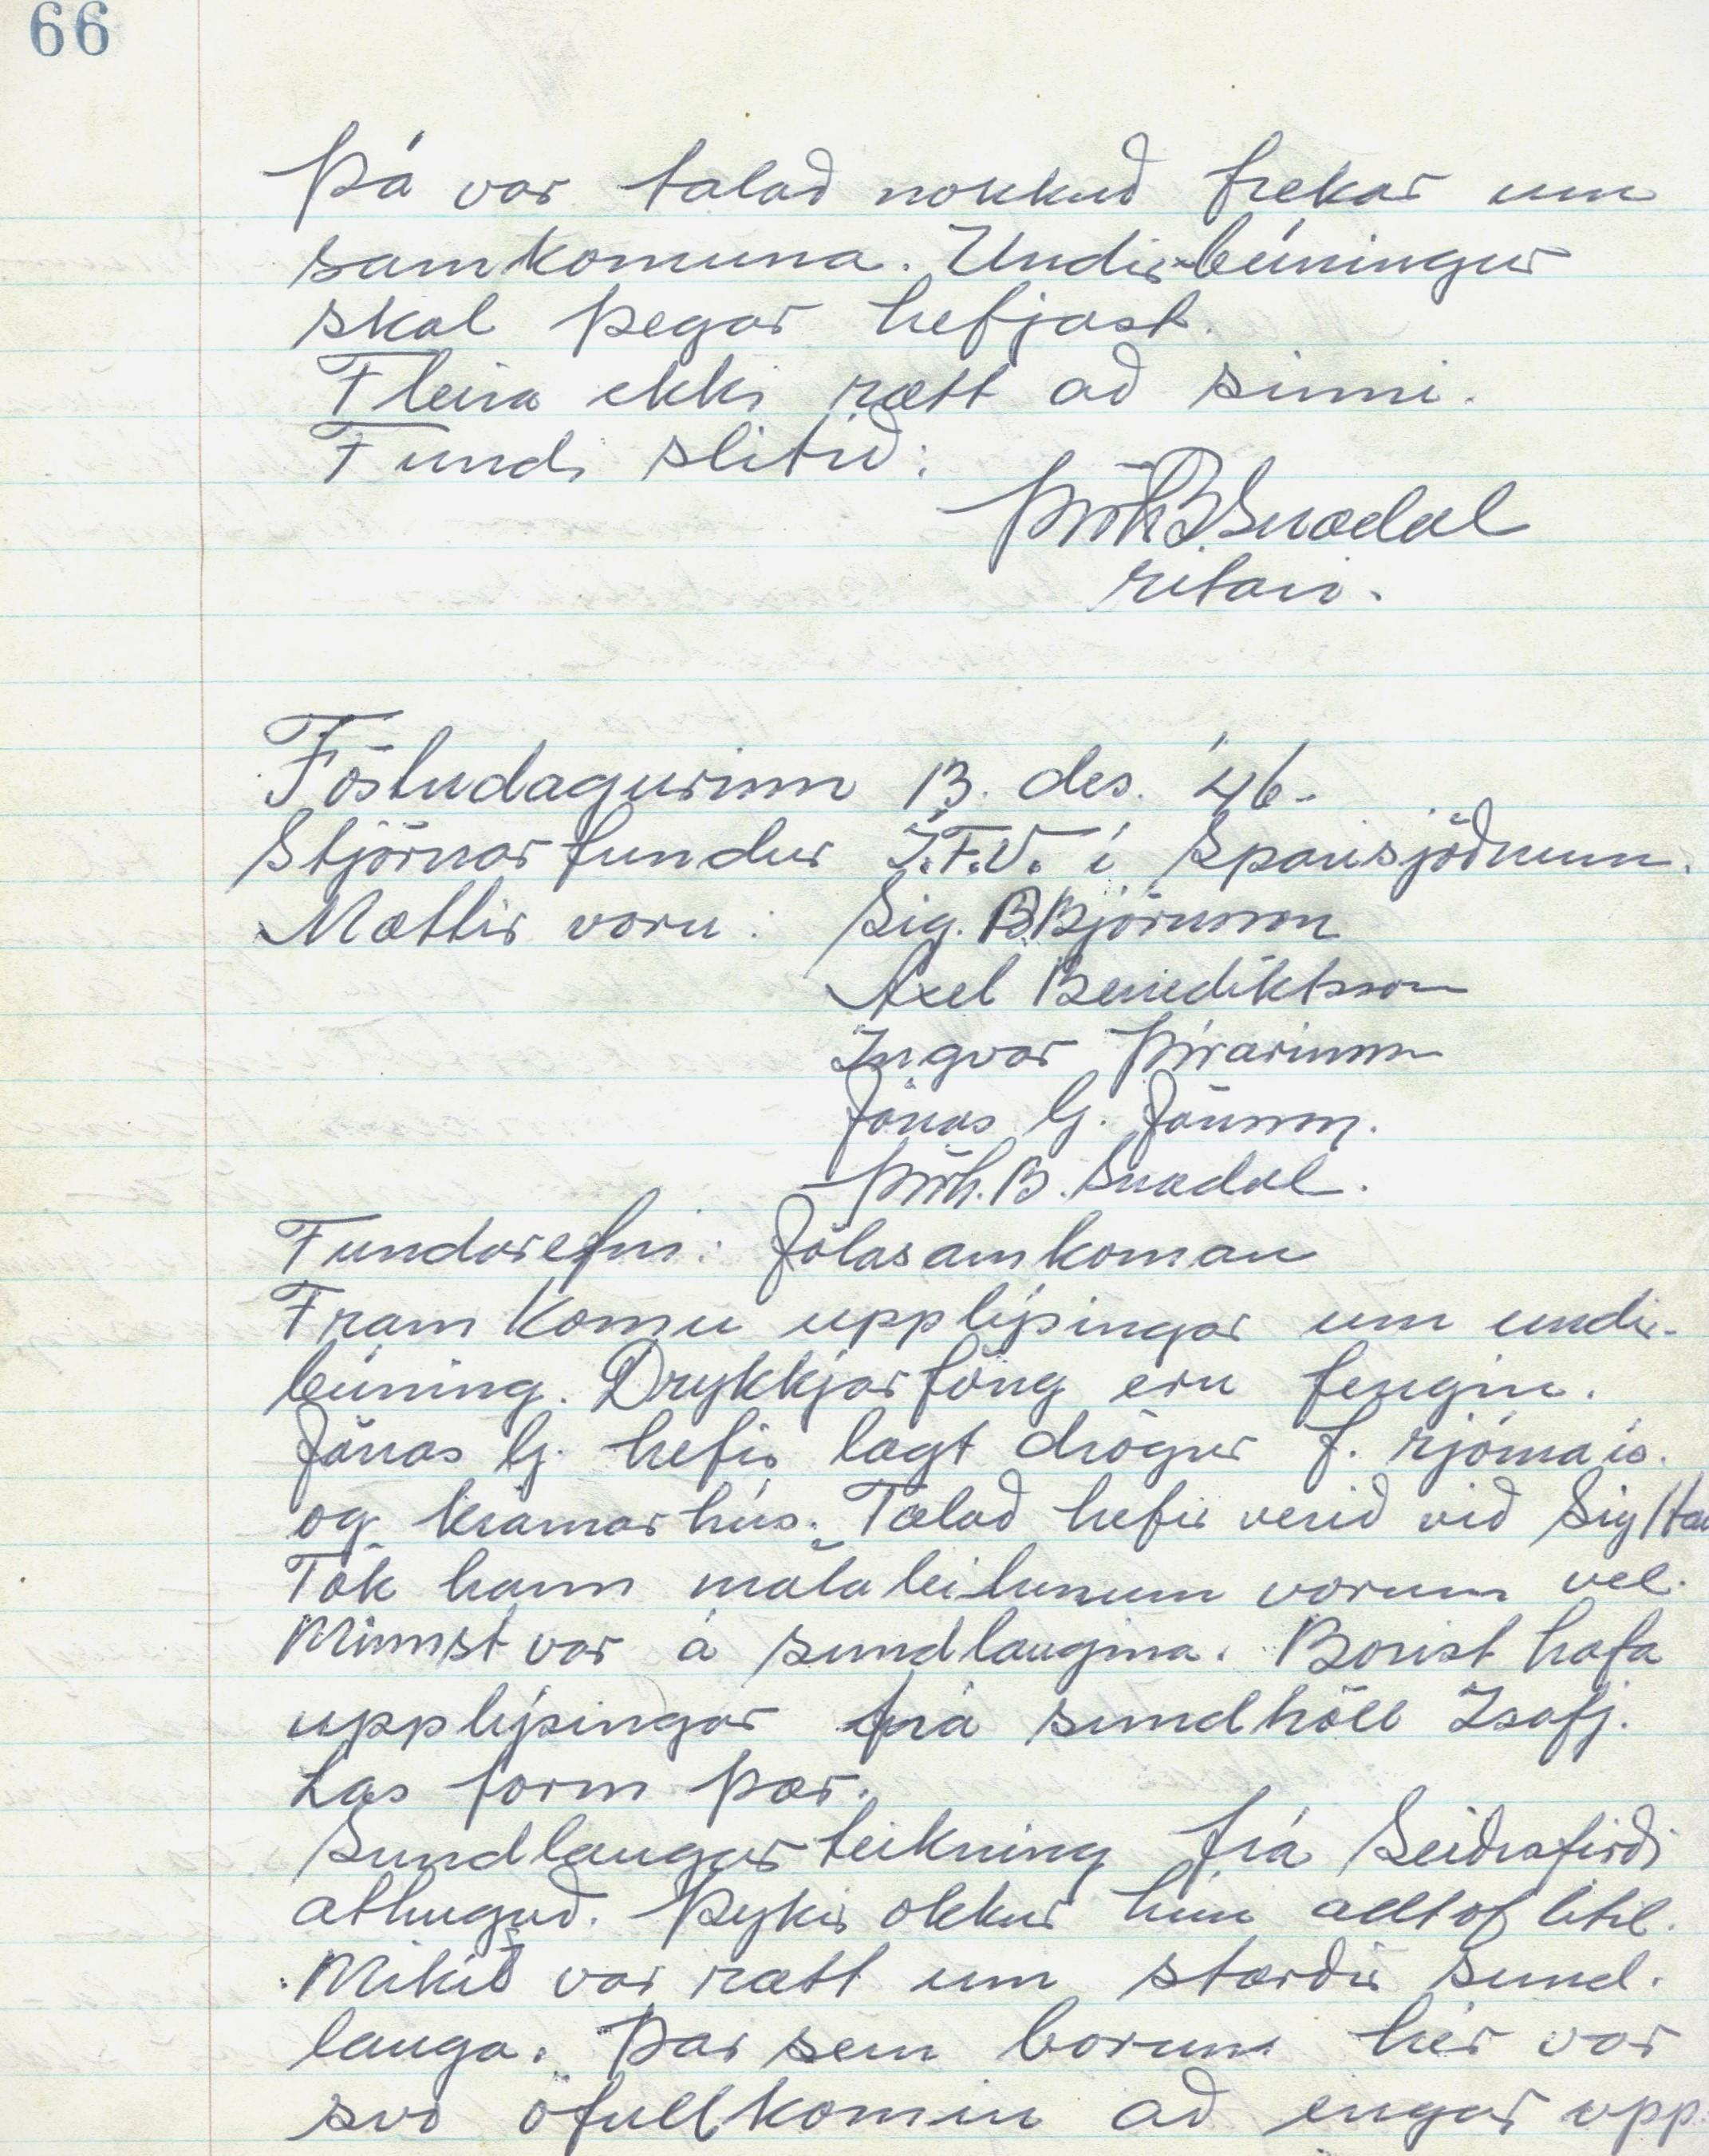 66
Þá var talað nokkuð frekar um
samkomuna. Undirbúningur
skal þegar hefjast.
Fleira ekki rætt að sinni.
Fundi slitið:
Þórh B. Snædal
ritari.
Föstudagurinn 13. des. '46.
Stjórnarfundur Í.F.V. í Sparisjóðnum.
Mættir voru: Sig. B Björnsson
Axel Benediktsson
Ingvar Þórarinsson
Jónas G. Jónsson.
Þórh. B. Snædal.
Fundarefni: Jólasamkoman
Fram komu upplýsingar um undir-
búning. Drykkjarföng eru fengin.
Jónas G. hefir lagt drögur f. rjómaís.
og kramarhús. Talað hefir verið við Sig
Tók hann málaleitunum vorum vel.
Minnst var á sundlaugina. Borist hafa
upplýsingar frá sundhöll Ísafj.
Las form þær.
Sundlaugarteikning frá Seiðisfirði
athuguð. Þykir okkur hún allt of lítil.
Mikið var rætt um stærðir sund-
lauga. Þar sem borunn hér var
svo ófullkomin að engar upp-